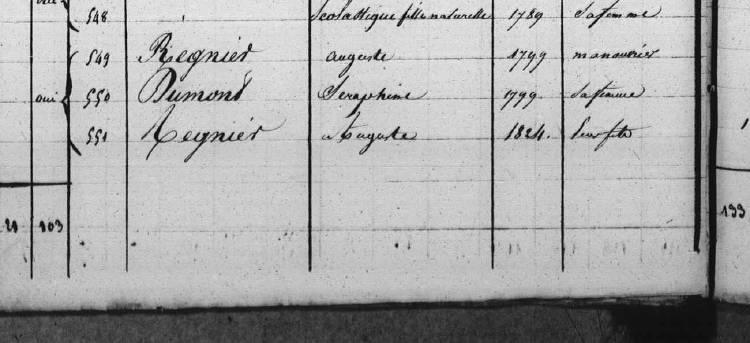 548 Scolastique fille naturelle 1789 sa femme
549 Regnier auguste 1799 manouvrier
oui 550 Dumont Seraphine 1799 sa femme
551 Regnier Auguste 1824. leur fils
103
133